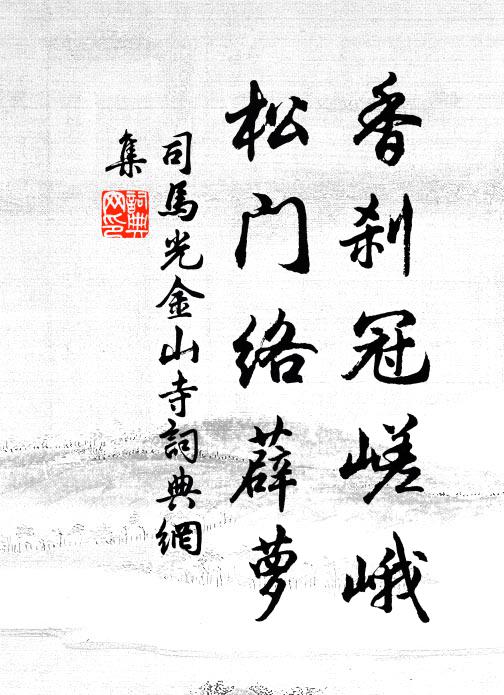 香刹冠嵯峨
松門络薜萝
司馬光金山寺詞典網
集
詞典网印